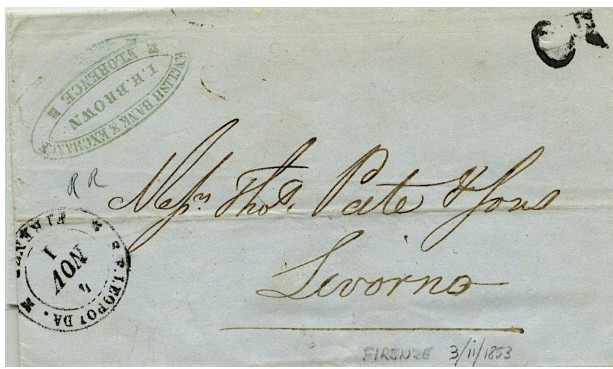 ENGLISH BANK & EXCHANGE
I. H. BROWN
FLORENCE
R R
Messrs. Thos. Pate & Sons
Livorno
FIRENZE
1
NOV
4
LEOPOLDA
FIRENZE 3/11/1853